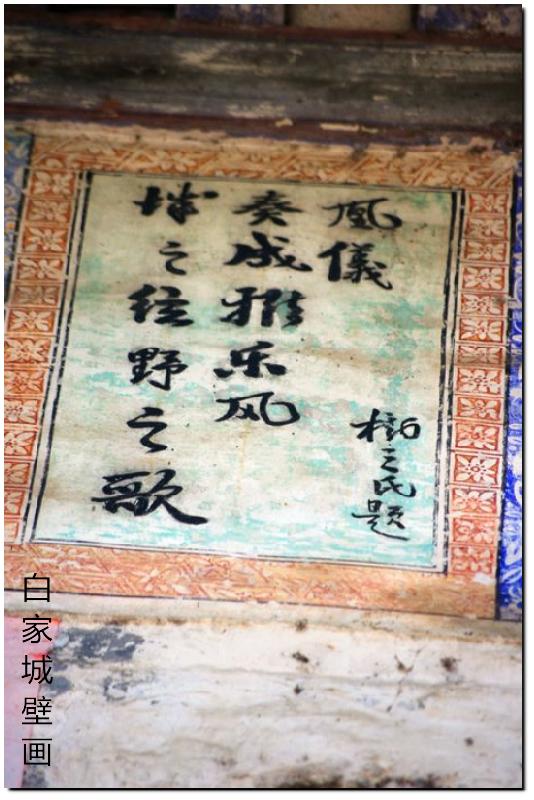 城之絃野之歌
奏成雅乐风
凰儀
之氏题
白家城壁画